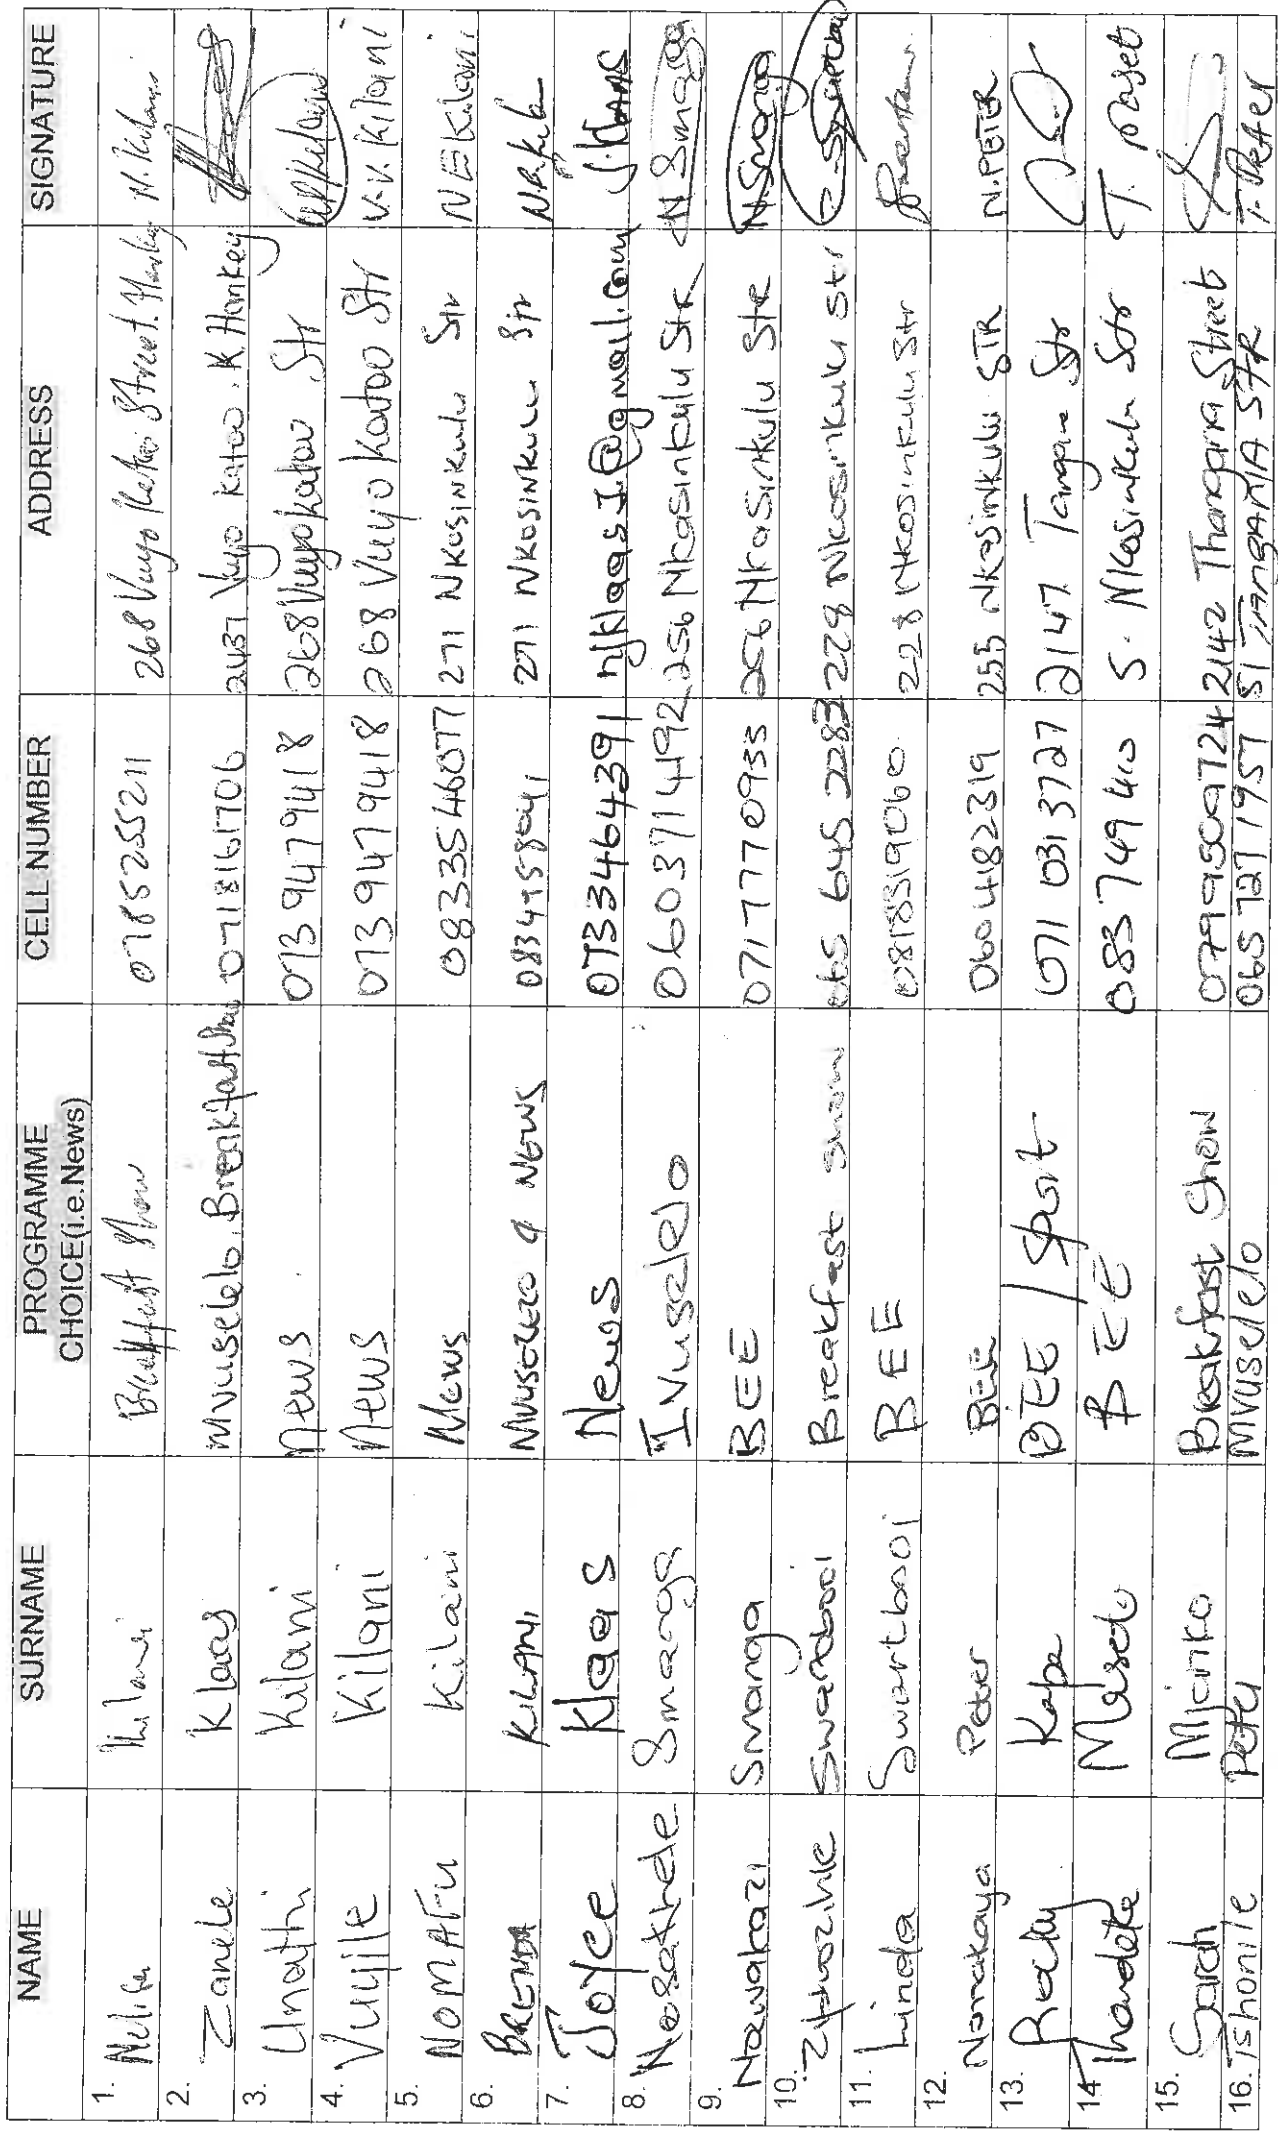 NAME SURNAME PROGRAMME CHOICE(i.e.News) CELL NUMBER ADDRESS SIGNATURE
1. Breakfast Show 0785255211 268 Vuyo Street. N. Kilani
2. Zanele Klaas Mvuselelo. Breakfast Show 0718161706 2437 Vuyo Katoo. K. Hankey
3. Unathi Kilani News 0739479418 268 Vuyo Katoo Str
4. Vuyile Kilani News 0739479418 268 Vuyo Katoo Str V.V. Kilani
5. NOMAFU Kilani News 0833546077 271 Nkosinkulu Str N E Kilani
6. BRENDA KILANI MVUSELELO & NEWS 271 NKOSINKULU Str
7. Joyce Klaas News 0733464391 njklaas1@gmail.com J. Klaas
8. Nosakhele Smanga Ivuselelo 0603714492 256 Nkosinkulu Str N Smanga
9. Nowabazi Smanga BEE 0717770933 256 Nkosinkulu Str N. Smanga
10. Ziphozihle Swartbooi Breakfast Show 065 645 2283 228 Nkosinkulu Str
11. Linda Swartbooi BEE 0818319060 228 Nkosinkulu Str
12. Nomakaya Peter BEE 0600482319 255 Nkosinkulu STR N. PETER
13. Kape BEE / Sport 071 031 3727 2147 Tangana Str
14 Thandeka Maseto BEE 083 749 410 5. Nkosinkulu Str T. Maset
15. Sarah Mjanko Breakfast Show 0799509724 2142 Thangana Street
16. Tshonile Peter Mvuselelo 065 727 1957 51 TANGANA STR T. Peter